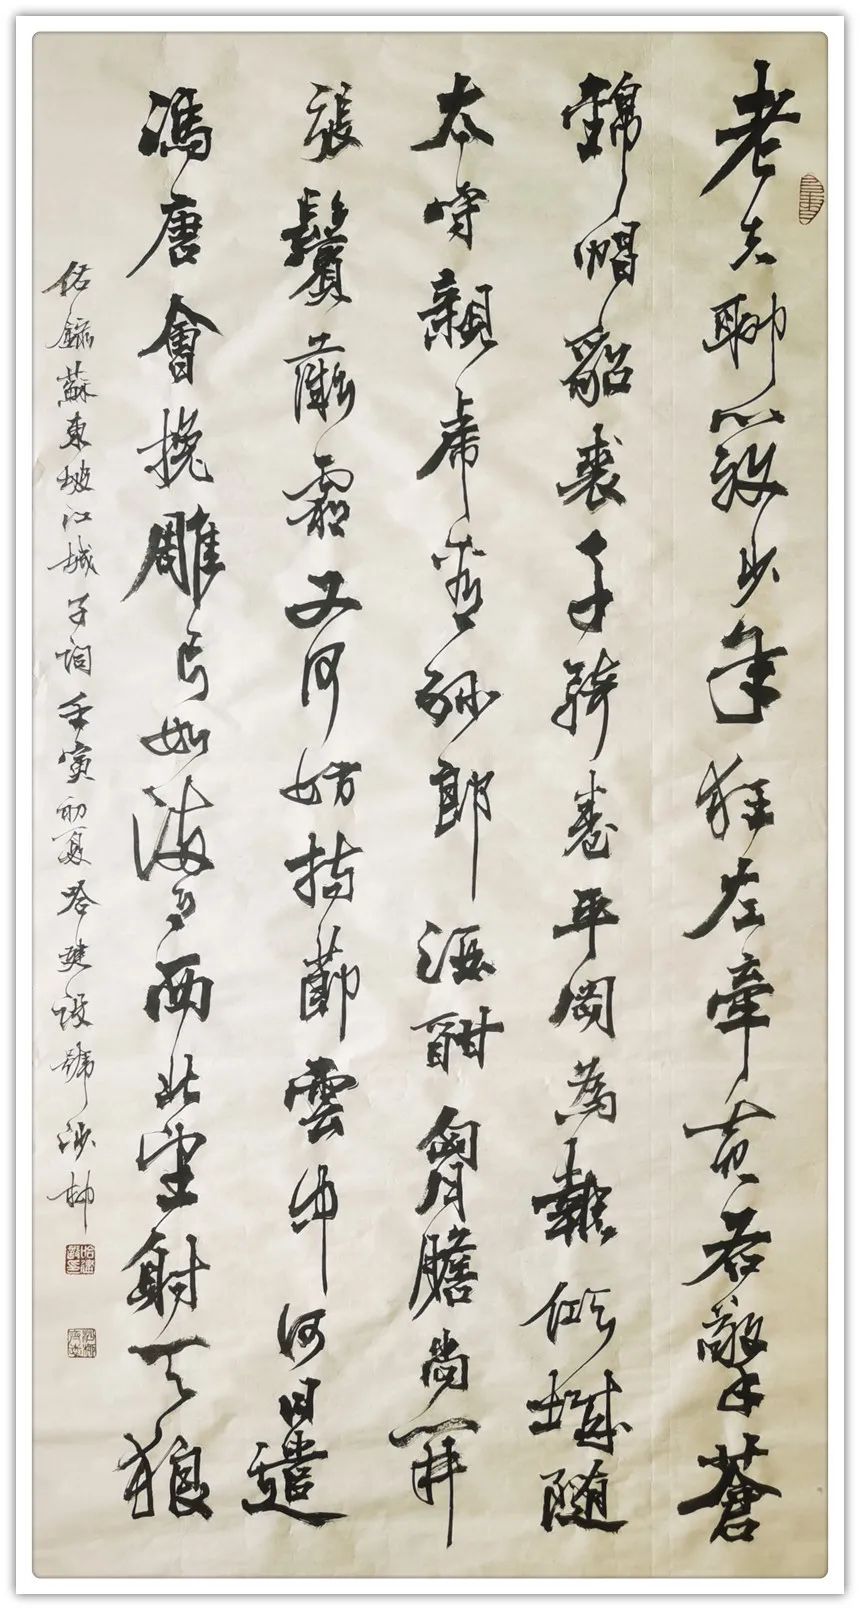 老夫聊發少年狂左牽黃右擎蒼
錦帽貂裘千騎卷平岡為報傾城隨
太守親虎看孫郎酒酣胷膽尚開
張鬢微霜又何妨持節雲中何日遣
馮唐會挽雕弓如滿月西北望射天狼
錄蘇東坡江城子詞壬寅初夏哈建設號沙柳